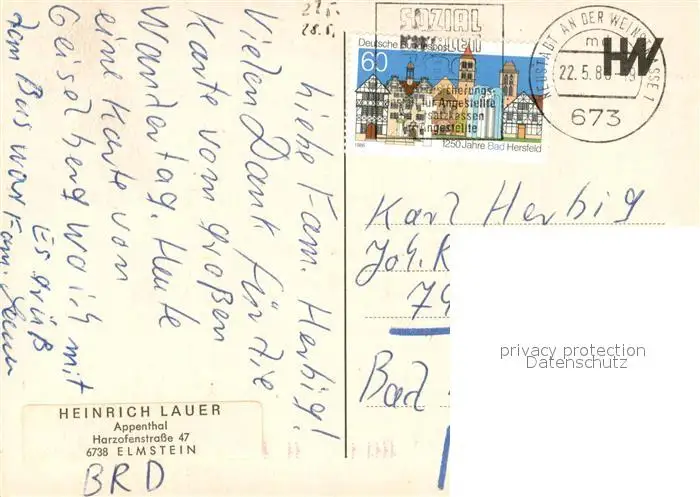 22.5.
28.5.
Liebe Fam. Herbig!
Vielen Dank für die
Karte vom großen
Wandertag. Heute
eine Karte von
Geiselberg wo ich mit
dem Bus war
Es grüß
Fam. Lauer
SOZIAL
Deutsche Bundespost
60
für Angestellte
1986
1250 Jahre Bad Hersfeld
NEUSTADT AN DER WEINSTRASSE 1
22.5.8
673
HW
Karl Herbig
Joh. R
79
Bad
privacy protection
Datenschutz
HEINRICH LAUER
Appenthal
Harzofenstraße 47
6738 ELMSTEIN
BRD